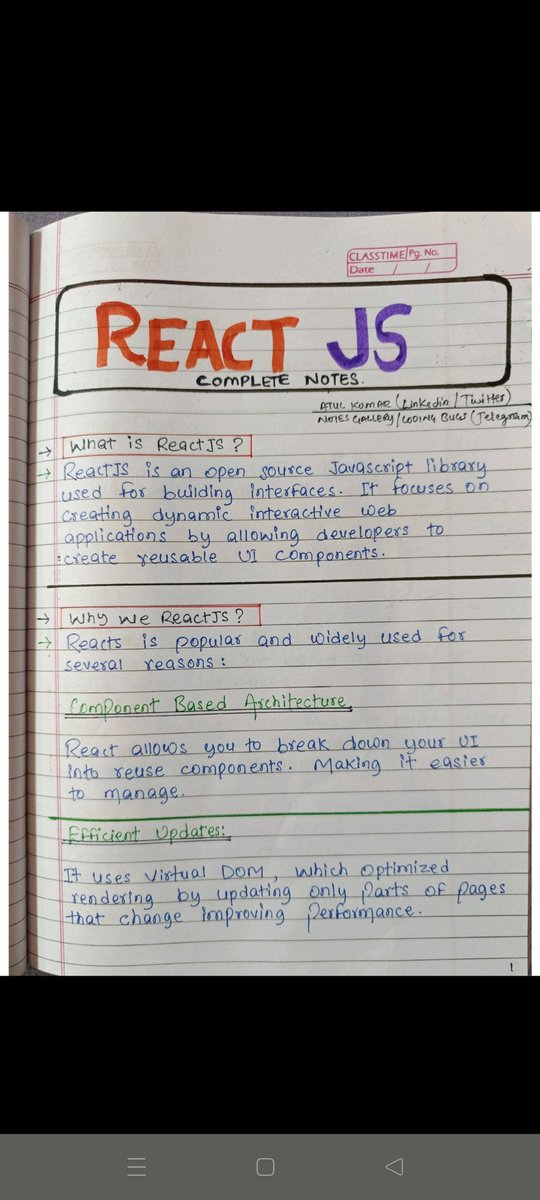 CLASSTIME Pg. No.
Date / /
REACT JS
COMPLETE NOTES.
ATUL KUMAR (Linkedin / Twitter)
NOTES GALLERY / CODING BUGS (Telegram)
→ What is ReactJS?
→ ReactJS is an open source Javascript library
used for building interfaces. It focuses on
creating dynamic interactive web
applications by allowing developers to
create reusable UI components.
→ Why we ReactJS?
→ Reacts is popular and widely used for
several reasons:
Component Based Architecture
React allows you to break down your UI
into reuse components. Making it easier
to manage.
Efficient Updates:
It uses Virtual DOM, which optimized
rendering by updating only parts of pages
that change improving performance.
1